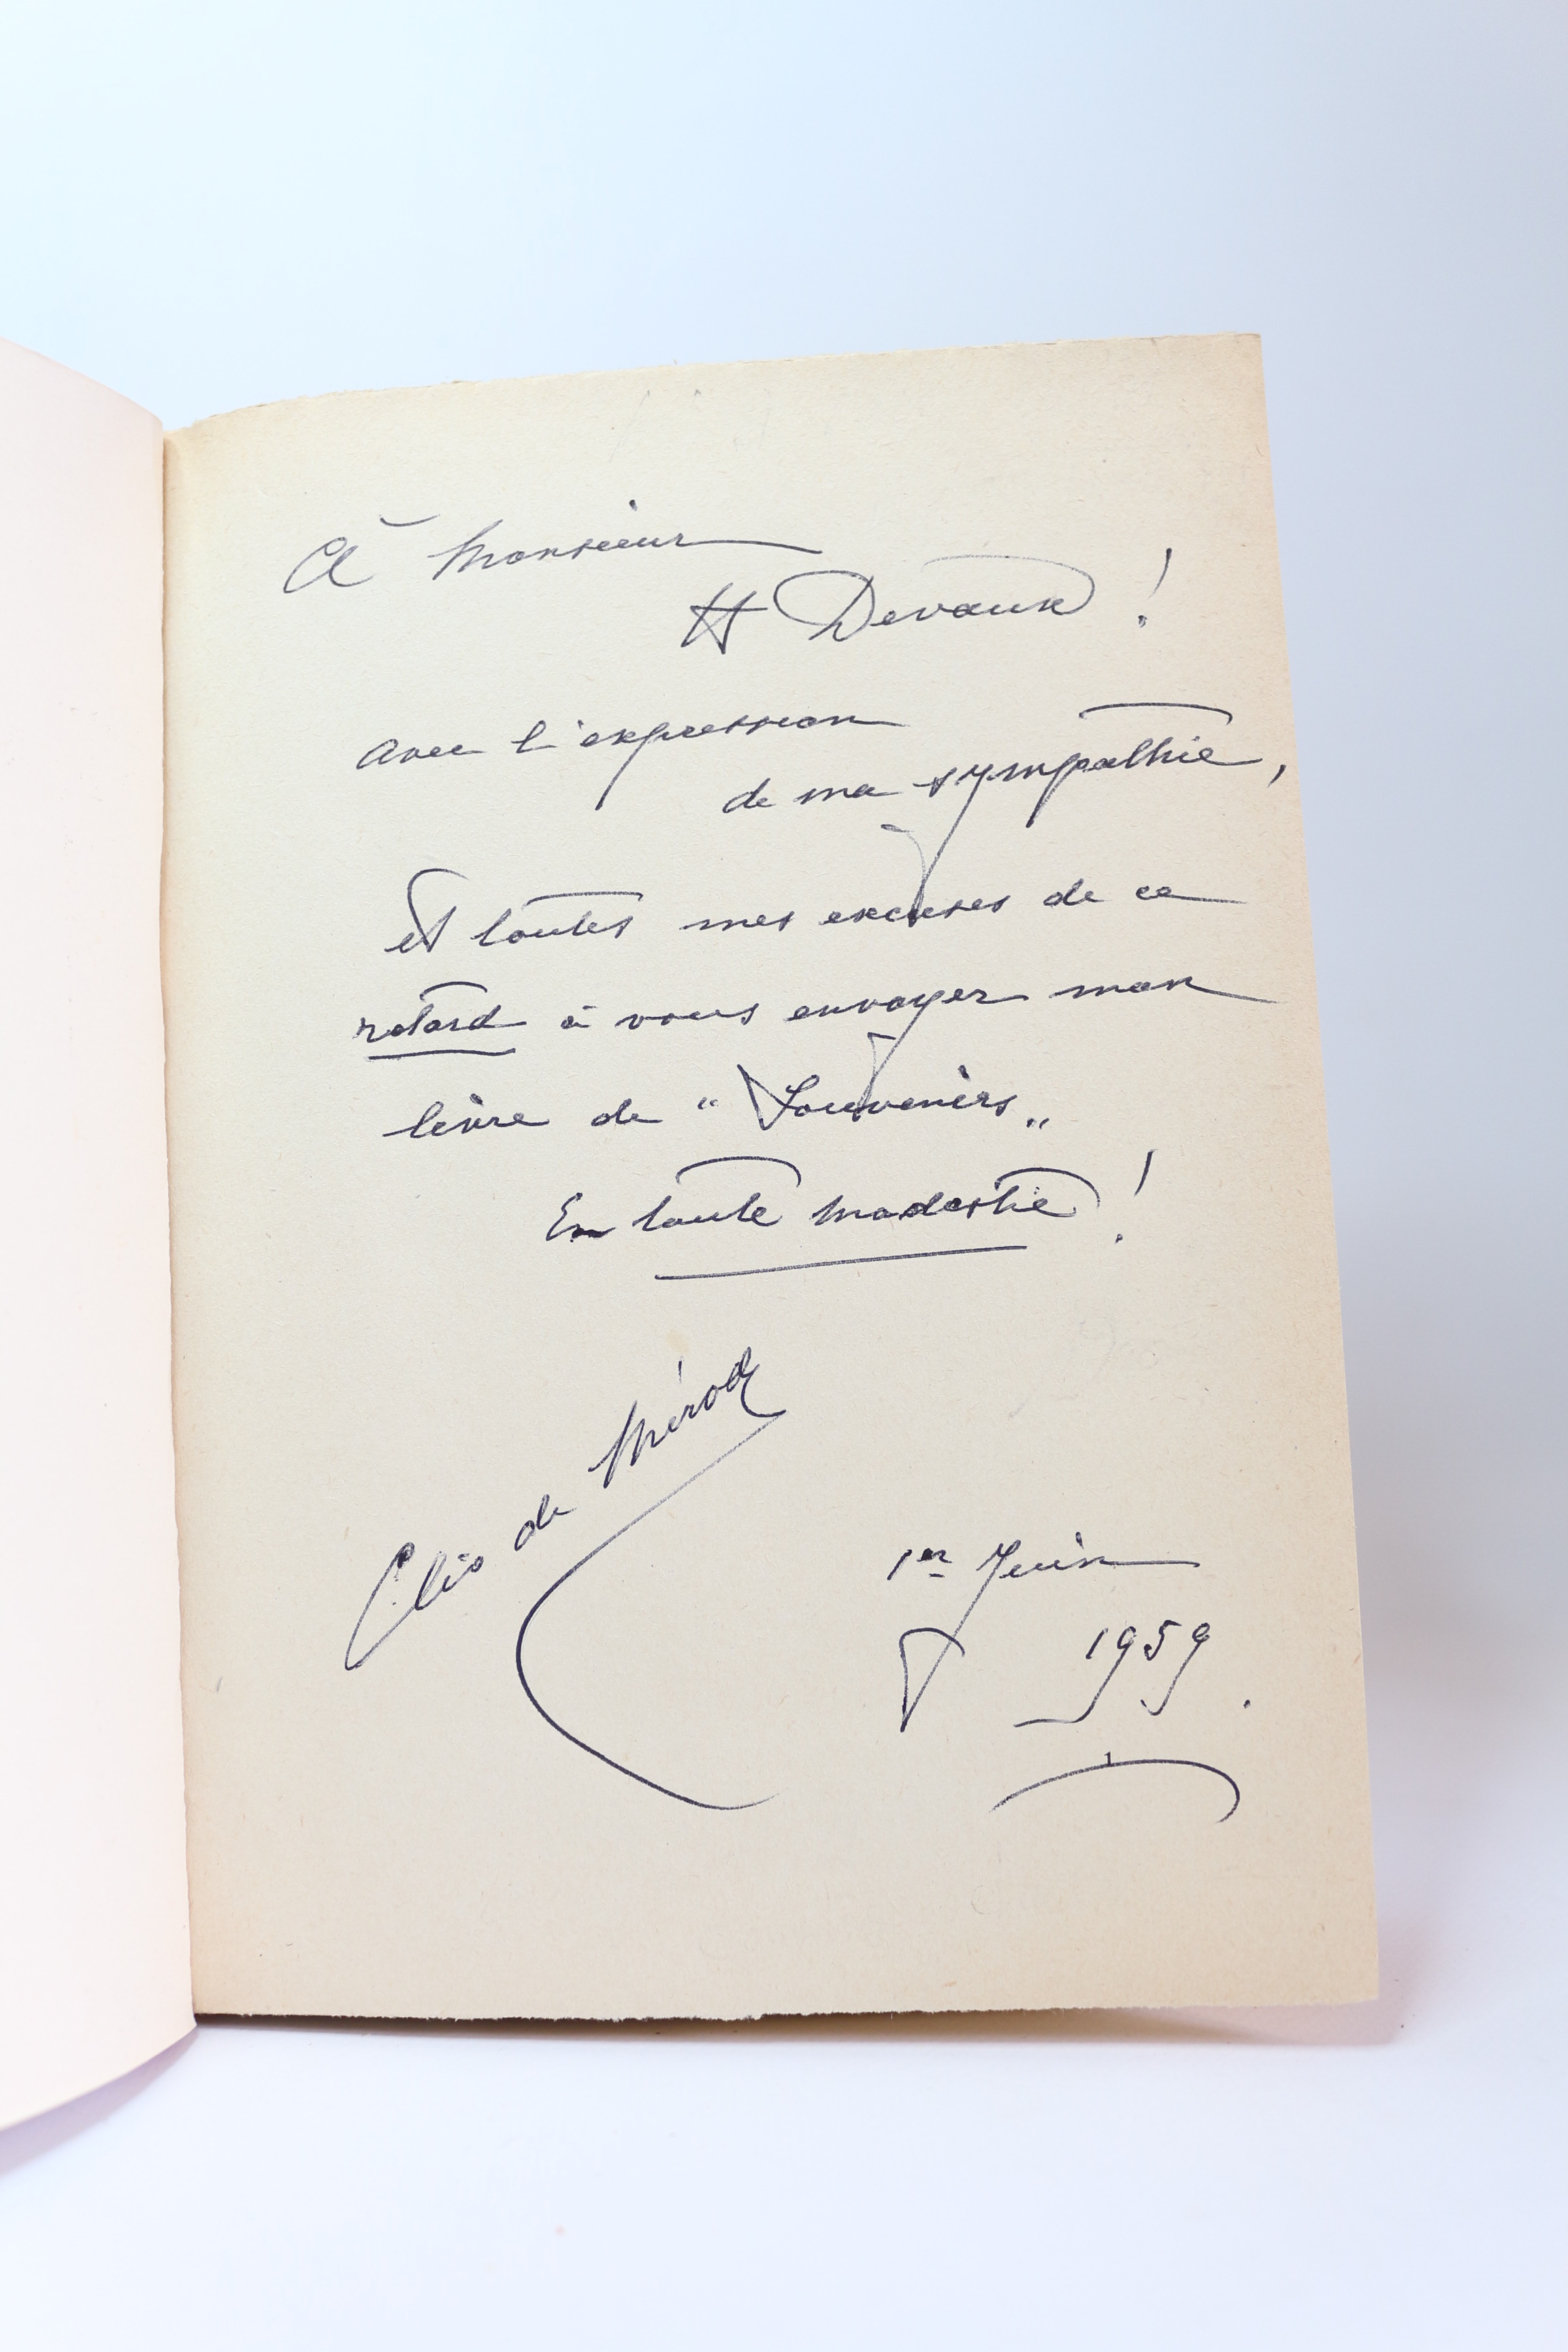 À Monsieur
H Devaux !
avec l'expression
de ma sympathie,
et toutes mes excuses de ce
retard à vous envoyer mon
livre de " Souvenirs "
En toute modestie !
Cléo de Mérode
1er Juin
1959.
1